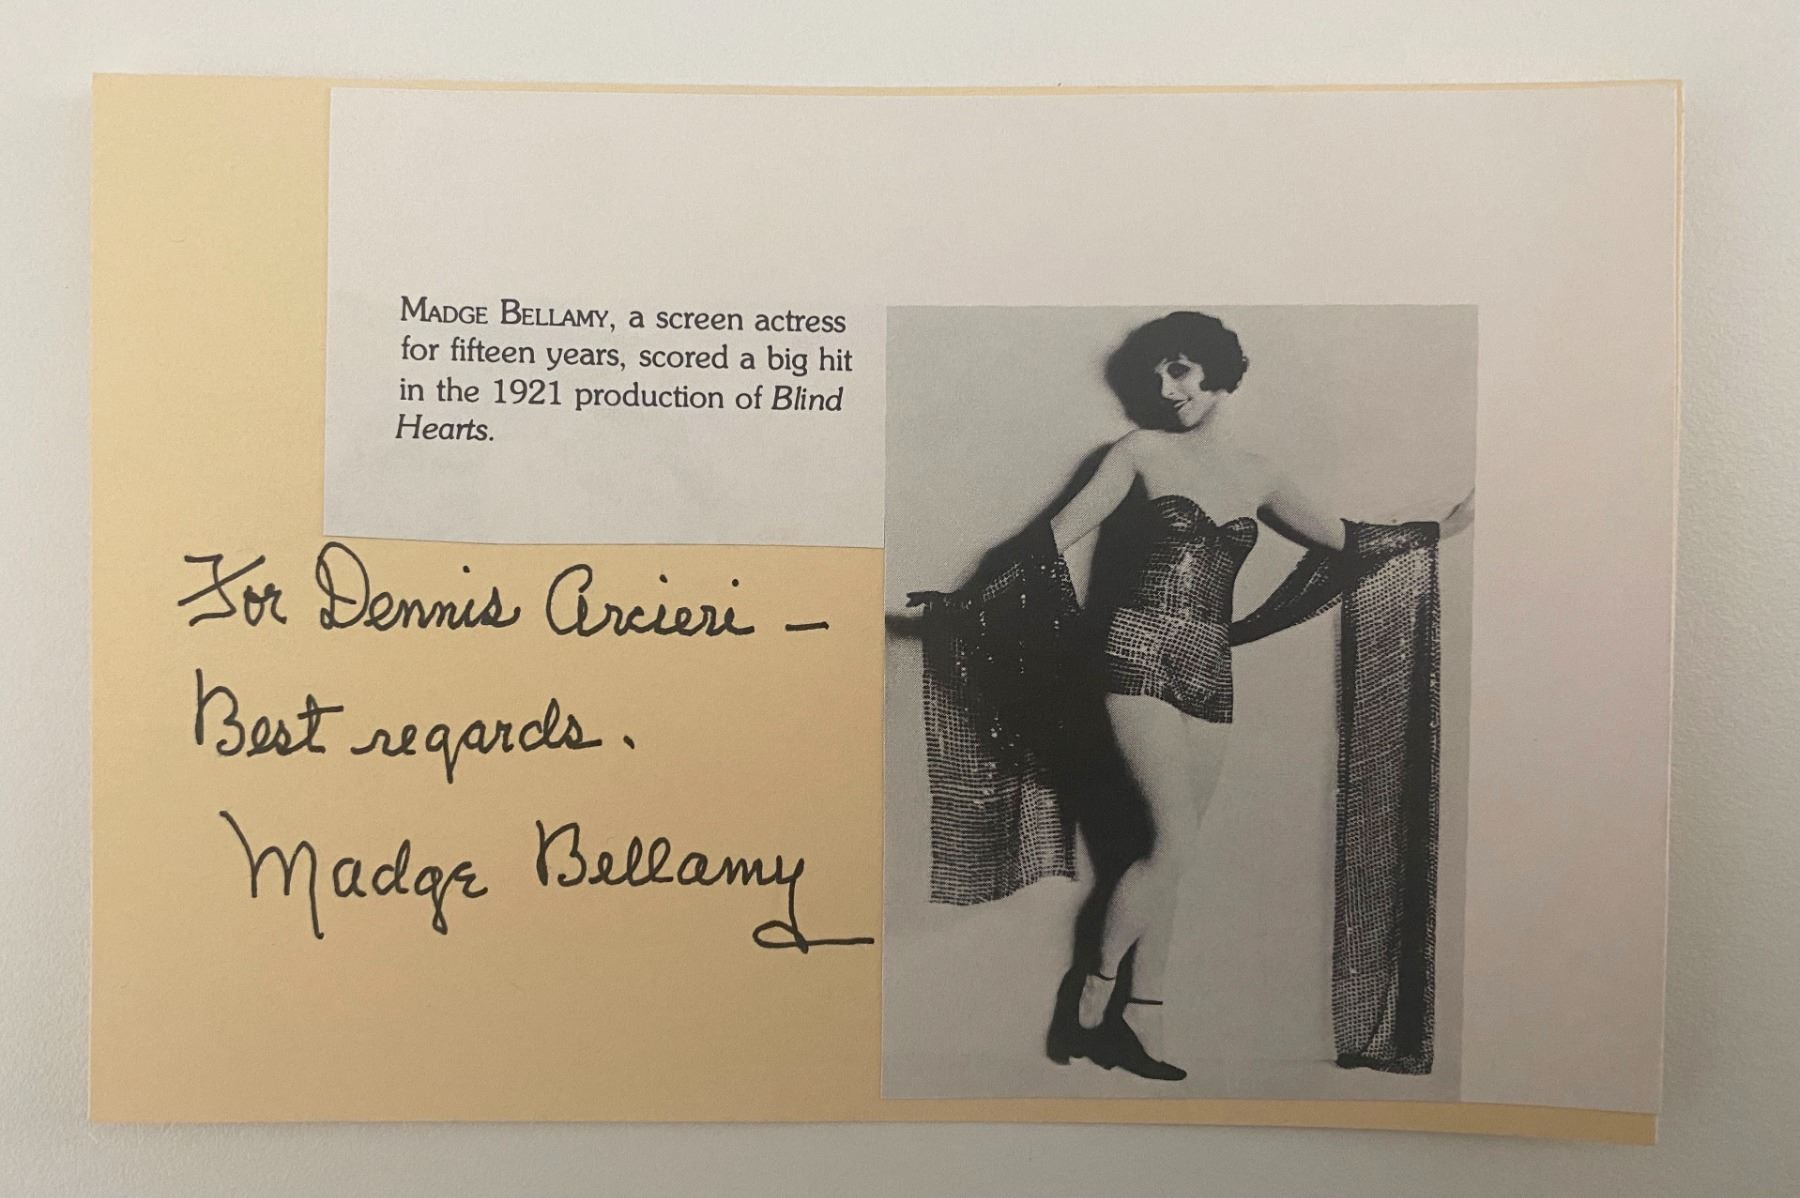 MADGE BELLAMY, a screen actress
for fifteen years, scored a big hit
in the 1921 production of Blind
Hearts.
For Dennis Arcieri –
Best regards.
Madge Bellamy